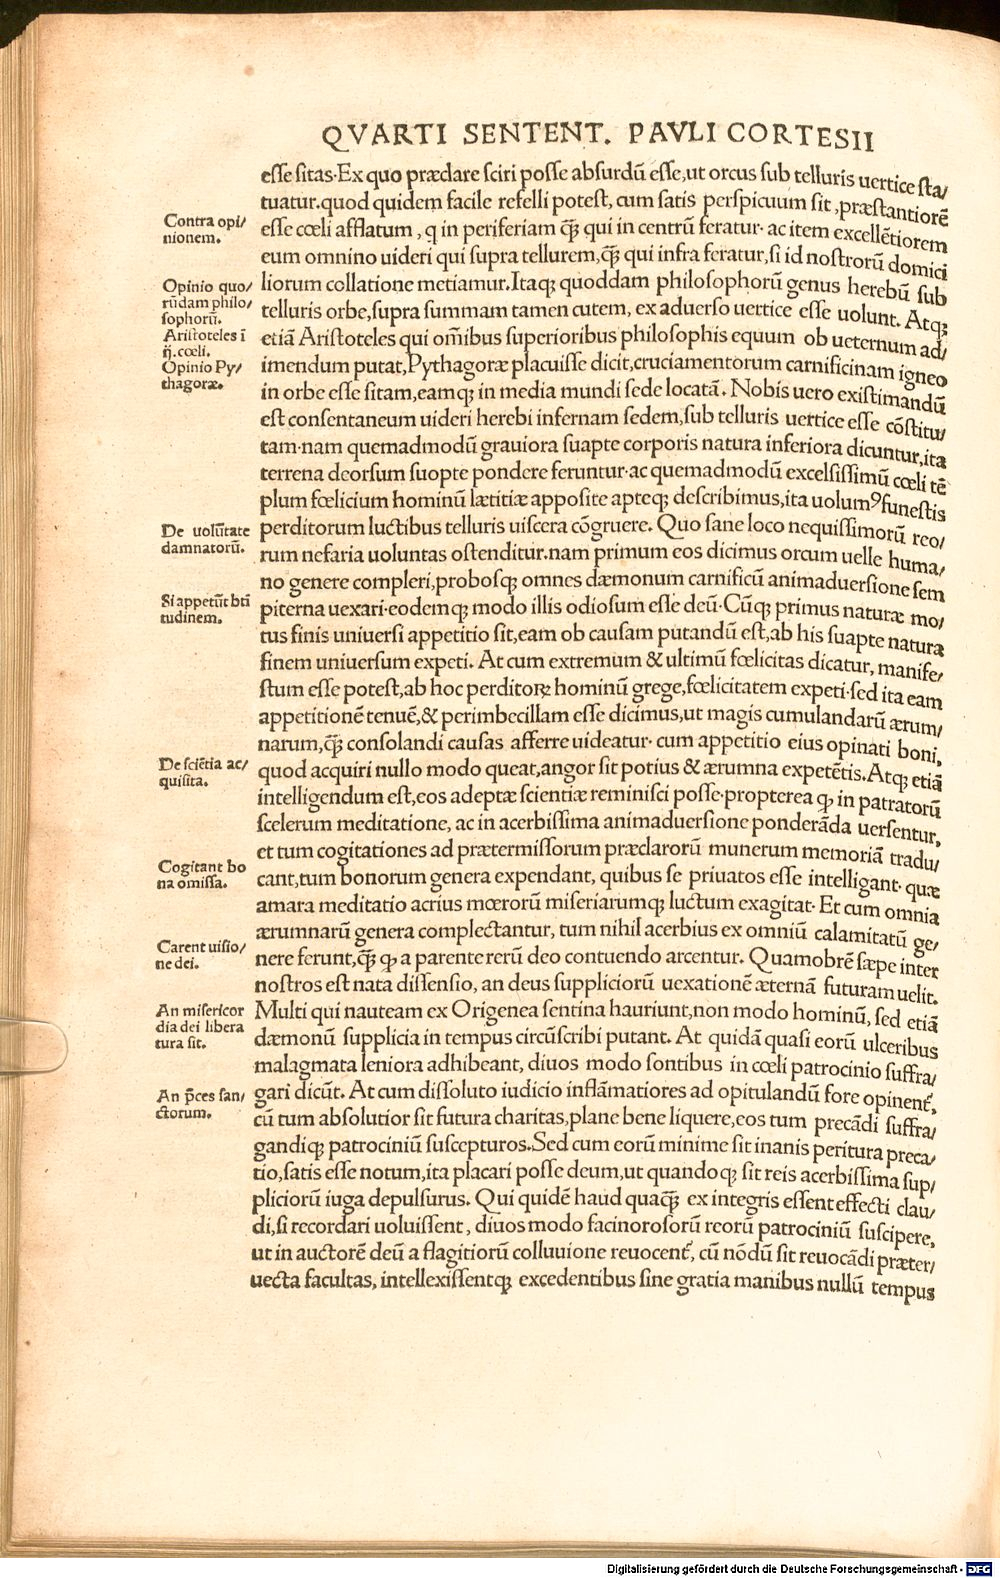 QVARTI SENTENT. PAVLI CORTESII
esse sitas·Ex quo præclare sciri posse absurdū esse,ut orcus sub telluris uertice sta/
tuatur.quod quidem facile refelli potest, cum satis perspicuum sit ,præstantiorē
Contra opi/
nionem.
esse cœli afflatum , q in periferiam q̄ꝫ qui in centrū feratur· ac item excellētiorem
eum omnino uideri qui supra tellurem,q̄ꝫ qui infra feratur,si id nostrorū domici
Opinio quo/
rūdam philo/
sophorū.
Aristoteles ī
ij.cœli.
Opinio Py/
thagoræ.
liorum collatione metiamur.Itaqꝫ quoddam philosophorū genus herebū sub
telluris orbe,supra summam tamen cutem, ex aduerso uertice esse uolunt. Atqꝫ
etiā Aristoteles qui om̄ibus superioribus philosophis equum ob ueternum ad/
imendum putat,Pythagoræ placuisse dicit,cruciamentorum carnificinam igneo
in orbe esse sitam,eamqꝫ in media mundi sede locatā. Nobis uero existimandū
est consentaneum uideri herebi infernam sedem,sub telluris uertice esse cōstitu/
tam·nam quemadmodū grauiora suapte corporis natura inferiora dicuntur,ita
terrena deorsum suopte pondere feruntur·ac quemadmodū excelsissimū cœli tē
plum fœlicium hominū lætitiæ apposite apteqꝫ describimus,ita uolumꝰ funestis
De uolūtate
damnatorū.
perditorum luctibus telluris uiscera cōgruere. Quo sane loco nequissimorū reo/
rum nefaria uoluntas ostenditur.nam primum eos dicimus orcum uelle huma/
no genere compleri,probosqꝫ omnes dæmonum carnificū animaduersione sem
Si appetūt bti
tudinem.
piterna uexari·eodemqꝫ modo illis odiosum esse deū·Cūqꝫ primus naturæ mo/
tus finis uniuersi appetitio sit,eam ob causam putandū est,ab his suapte natura
finem uniuersum expeti. At cum extremum & ultimū fœlicitas dicatur, manife/
stum esse potest,ab hoc perditoꝝ hominū grege,fœlicitatem expeti·sed ita eam
appetitionē tenuē,& perimbecillam esse dicimus,ut magis cumulandarū ærum/
narum,q̄ꝫ consolandi causas afferre uideatur· cum appetitio eius opinati boni,
De sciētia ac/
quisita.
quod acquiri nullo modo queat,angor sit potius & ærumna expetētis.Atqꝫ etiā
intelligendum est,eos adeptæ scientiæ reminisci posse·propterea ꝙ in patratorū
scelerum meditatione, ac in acerbissima animaduersione ponderāda uersentur,
et tum cogitationes ad prætermissorum præclarorū munerum memoriā tradu/
Cogitant bo
na omissa.
cant,tum bonorum genera expendant, quibus se priuatos esse intelligant· quæ
amara meditatio acrius mœrorū miseriarumqꝫ luctum exagitat· Et cum omnia
ærumnarū genera complectantur, tum nihil acerbius ex omniū calamitatū ge/
Carent uisio/
ne dei.
nere ferunt,q̄ꝫ ꝙ a parente rerū deo contuendo arcentur. Quamobrē sæpe inter
nostros est nata dissensio, an deus suppliciorū uexationē æternā futuram uelit.
An misericor
dia dei libera
tura sit.
Multi qui nauteam ex Origenea sentina hauriunt,non modo hominū, sed etiā
dæmonū supplicia in tempus circūscribi putant. At quidā quasi eorū ulceribus
malagmata leniora adhibeant, diuos modo sontibus in cœli patrocinio suffra/
An p̄ces san/
ctorum.
gari dicūt. At cum dissoluto iudicio inflāmatiores ad opitulandū fore opinenť,
cū tum absolutior sit futura charitas,plane bene liquere,eos tum precādi suffra/
gandiqꝫ patrociniū suscepturos.Sed cum eorū minime sit inanis peritura preca/
tio,satis esse notum,ita placari posse deum,ut quandoqꝫ sit reis acerbissima sup/
pliciorū iuga depulsurus. Qui quidē haud quaq̄ꝫ ex integris essent effecti clau/
di,si recordari uoluissent , diuos modo facinorosorū reorū patrociniū suscipere,
ut in auctorē deū a flagitiorū colluuione reuocenť, cū nōdū sit reuocādi præter/
uecta facultas, intellexissentqꝫ excedentibus sine gratia manibus nullū tempus
Digitalisierung gefördert durch die Deutsche Forschungsgemeinschaft · DFG